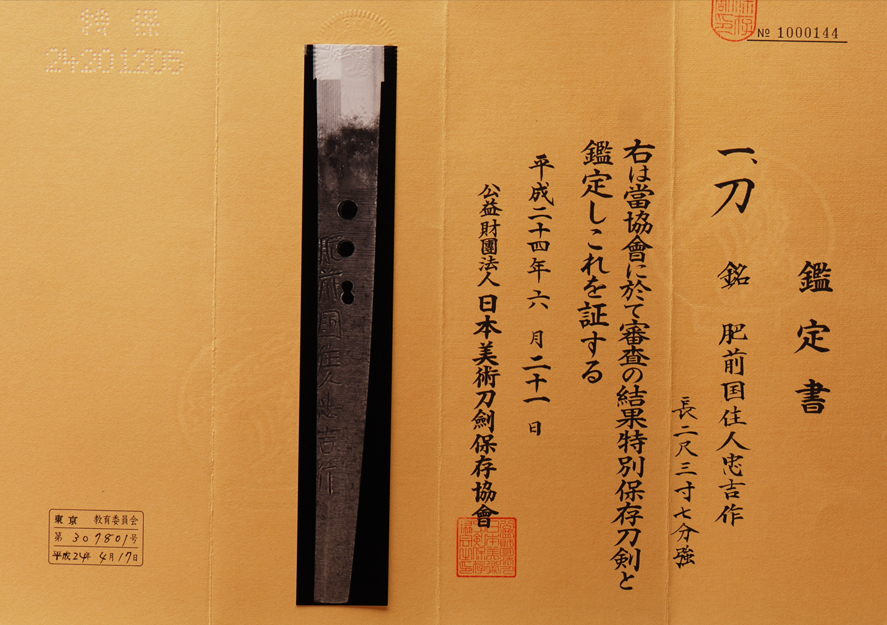 № 1000144
鑑定書
一、刀 銘 肥前国住人忠吉作
長二尺三寸七分強
右は當協會に於て審査の結果特別保存刀剣と
鑑定しこれを証する
平成二十四年六月二十一日
公益財團法人日本美術刀劍保存協會
肥前国住人忠吉作
特保
24201205
東京 教育委員会
第 307801号
平成24年 4月17日